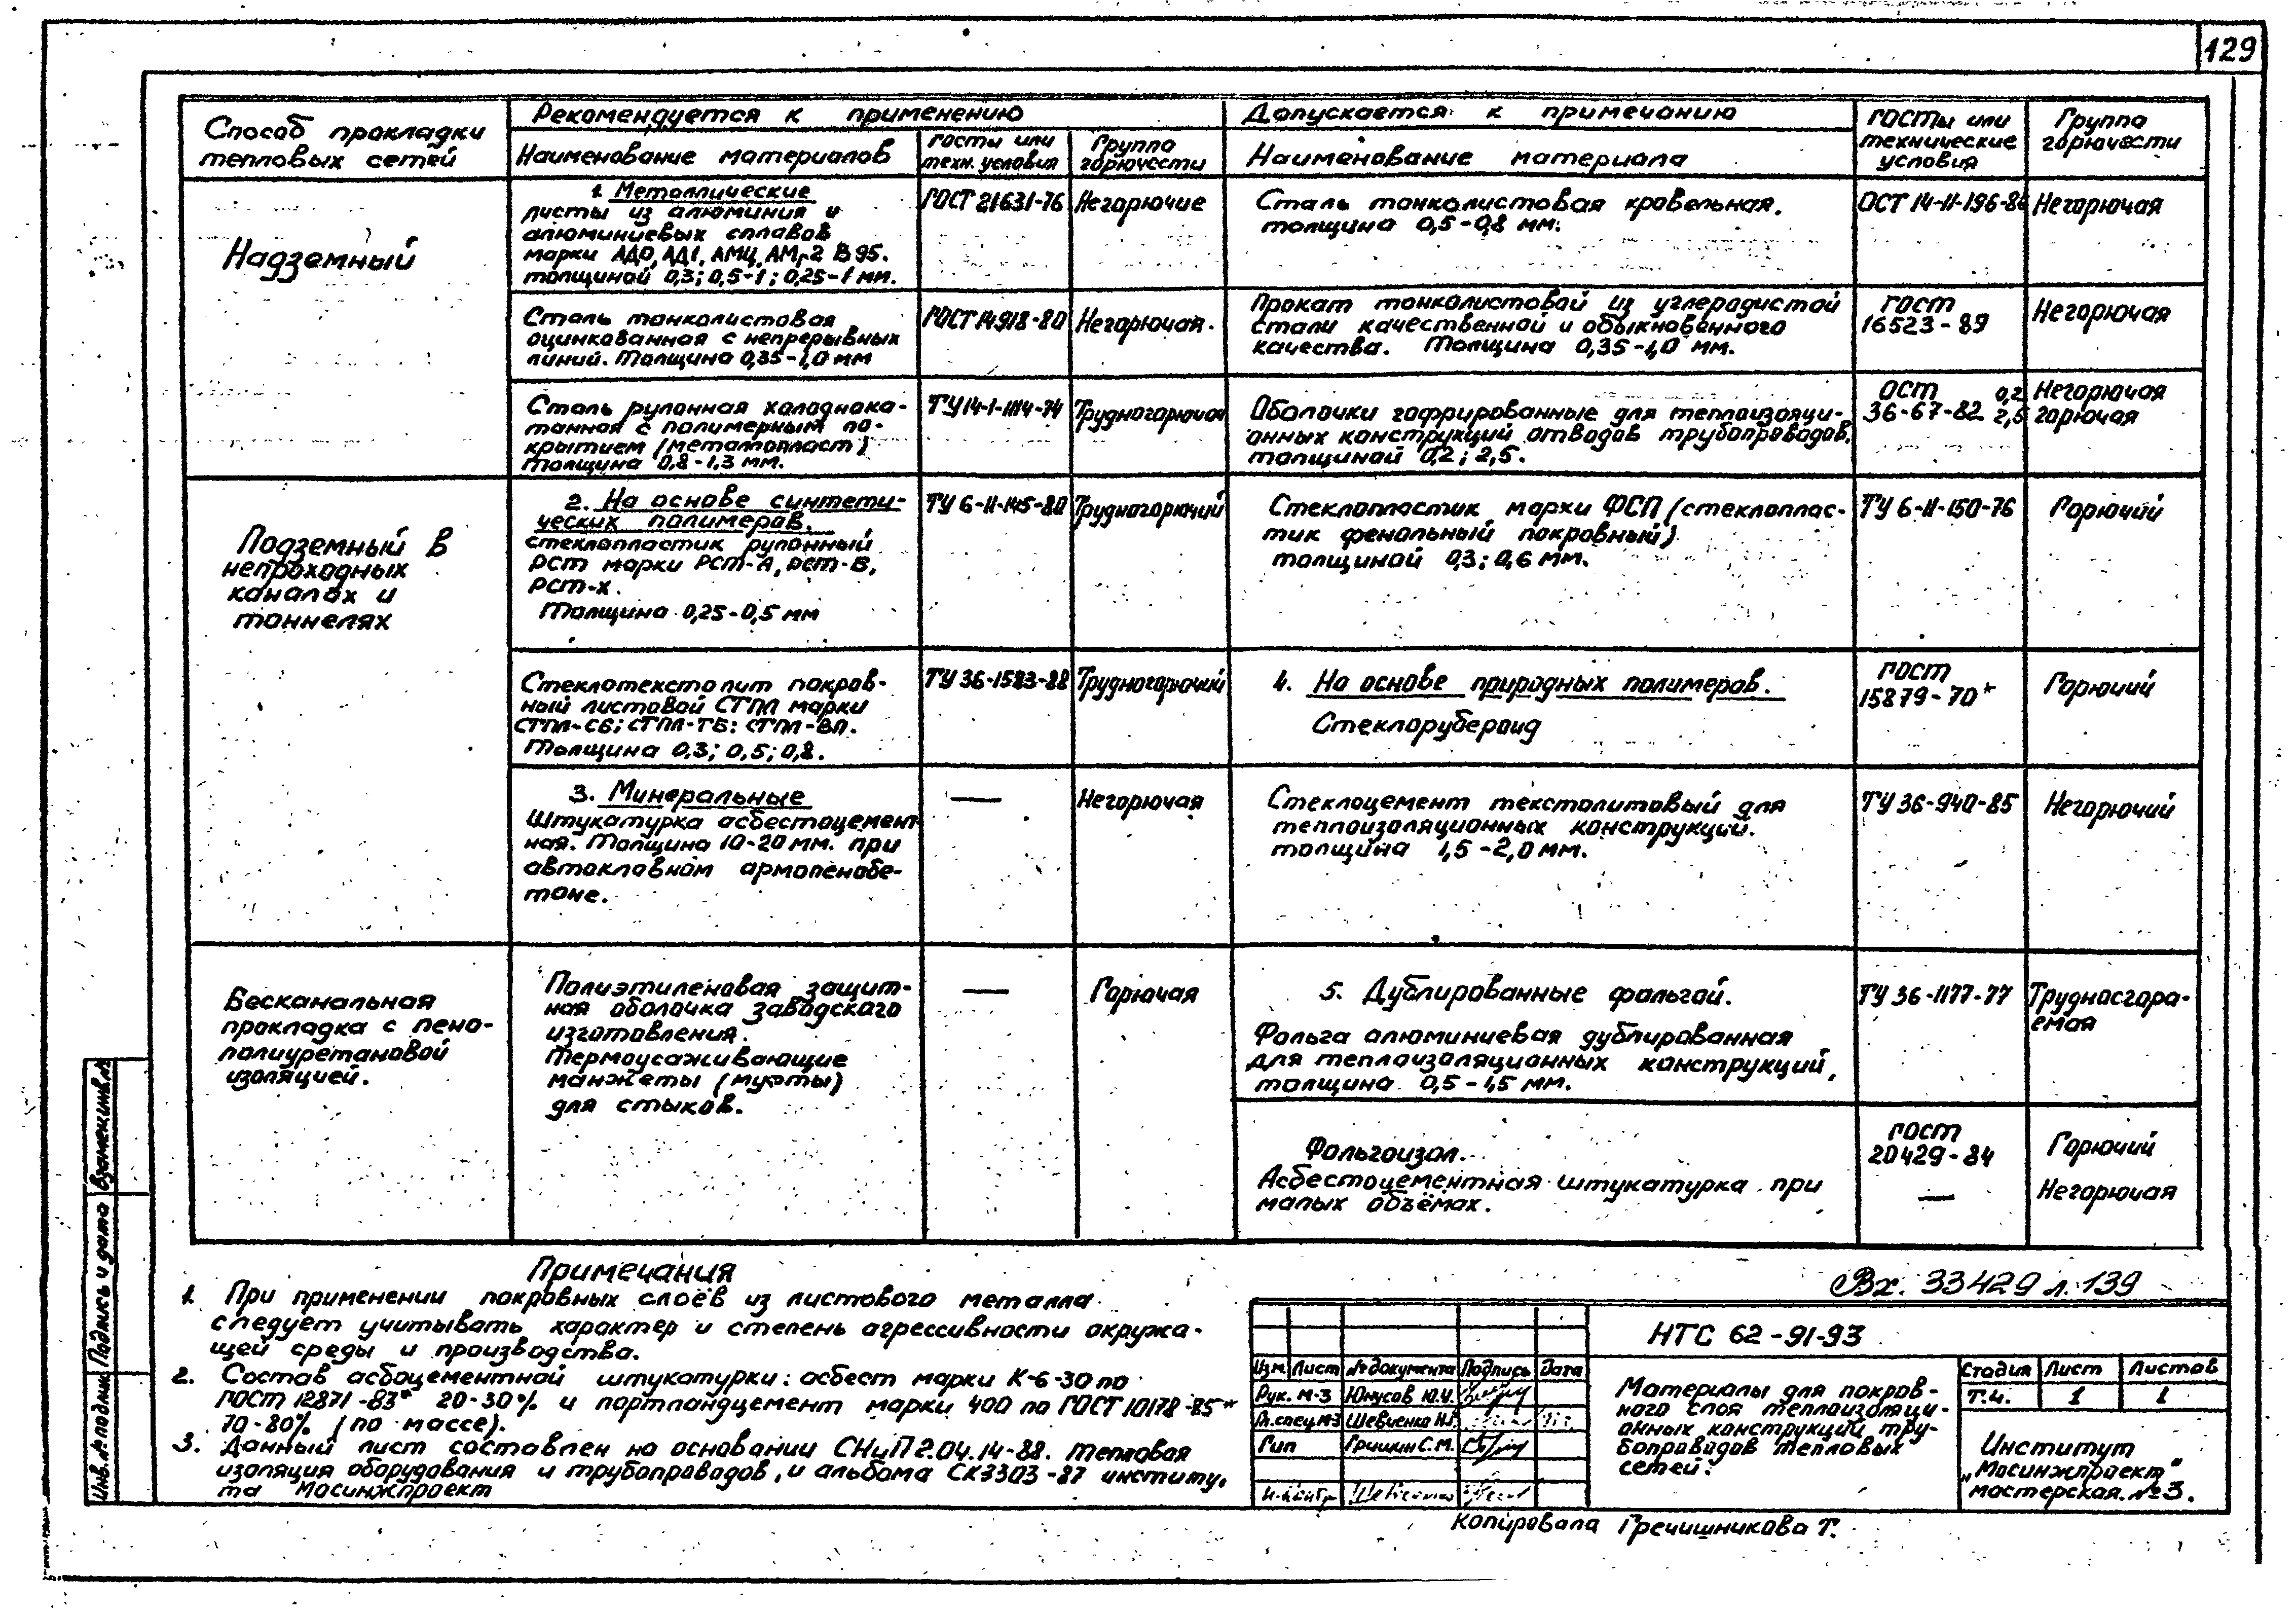 129
Способ прокладки
тепловых сетей
Рекомендуется к применению
Наименование материалов
ГОСТы или
техн. условия
Группа
горючести
Допускается к примечанию
Наименование материала
ГОСТы или
технические
условия
Группа
горючести
Надземный
1. Металлические
листы из алюминия и
алюминиевых сплавов
марки АДО, АД1, АМЦ, АМг2 В95.
толщиной 0,3; 0,5-1; 0,25-1 мм.
ГОСТ 21631-76
Негорючие
Сталь тонколистовая кровельная.
толщина 0,5-0,8 мм.
ОСТ 14-11-196-86
Негорючая
Сталь тонколистовая
оцинкованная с непрерывных
линий. Толщина 0,35-1,0 мм
ГОСТ 14918-80
Негорючая.
Прокат тонколистовой из углеродистой
стали качественной и обыкновенного
качества. Толщина 0,35-1,0 мм.
ГОСТ
16523-89
Негорючая
Сталь рулонная холоднока-
танная с полимерным по-
крытием (металлопласт)
Толщина 0,8-1,3 мм.
ТУ 14-1-1114-74
Трудногорючая
Оболочки гофрированные для теплоизоляци-
онных конструкций отводов трубопроводов.
толщиной 0,2; 2,5.
ОСТ 0,2
36-67-82 2,5
Негорючая
горючая
Подземный в
непроходных
каналах и
тоннелях
2. На основе синтети-
ческих полимеров.
стеклопластик рулонный
РСТ марки РСТ-А, РСТ-В,
РСТ-Х.
Толщина 0,25-0,5 мм
ТУ 6-11-145-80
Трудногорючий
Стеклопластик марки ФСП (стеклоплас-
тик фенольный покровный)
толщиной 0,3; 0,6 мм.
ТУ 6-11-150-76
Горючий
Стеклотекстолит покров-
ный листовой СТПЛ марки
СТПЛ-СБ; СТПЛ-ТБ: СТПЛ-ВП.
Толщина 0,3; 0,5; 0,8.
ТУ 36-1583-88
Трудногорючий
4. На основе природных полимеров.
Стеклорубероид
ГОСТ
15879-70*
Горючий
3. Минеральные
Штукатурка асбестоцемент
ная. Толщина 10-20 мм. при
автоклавном армопенобе-
тоне.
—
Негорючая
Стеклоцемент текстолитовый для
теплоизоляционных конструкций.
толщина 1,5-2,0 мм.
ТУ 36-940-85
Негорючий
Бесканальная
прокладка с пено-
полиуретановой
изоляцией.
Полиэтиленовая защит-
ная оболочка заводского
изготовления.
Термоусаживающие
манжеты (муфты)
для стыков.
—
Горючая
5. Дублированные фольгой.
Фольга алюминиевая дублированная
для теплоизоляционных конструкций,
толщина 0,5-1,5 мм.
ТУ 36-1177-77
Трудносгора-
емая
Фольгоизол.
Асбестоцементная штукатурка при
малых объёмах.
ГОСТ
20429-84
—
Горючий
Негорючая
Примечания
1. При применении покровных слоёв из листового металла
следует учитывать характер и степень агрессивности окружа-
щей среды и производства.
2. Состав асбоцементной штукатурки: асбест марки К-6-30 по
ГОСТ 12871-83* 20-30% и портландцемент марки 400 по ГОСТ 10178-85*
70-80% (по массе).
3. Данный лист составлен на основании СНиП 2.04.14-88. Тепловая
изоляция оборудования и трубопроводов, и альбома СК3303-87 институ-
та Мосинжпроект
Вх. 33429 л. 139
НТС 62-91-93
Изм. Лист № документа Подпись Дата
Рук. М-3 Юнусов Ю.У.
Гл.спец М-3 Шевченко Н.Г.
Гип Гришин С.М.
Н.контр Шевченко
Материалы для покров-
ного слоя теплоизоляци-
онных конструкций тру-
бопроводов тепловых
сетей.
Стадия Лист Листов
Т.ч. 1 1
Институт
„Мосинжпроект"
мастерская №3.
Копировала Гречишникова Т.
Инв.№ подлин Подпись и дата Взамен инв.№